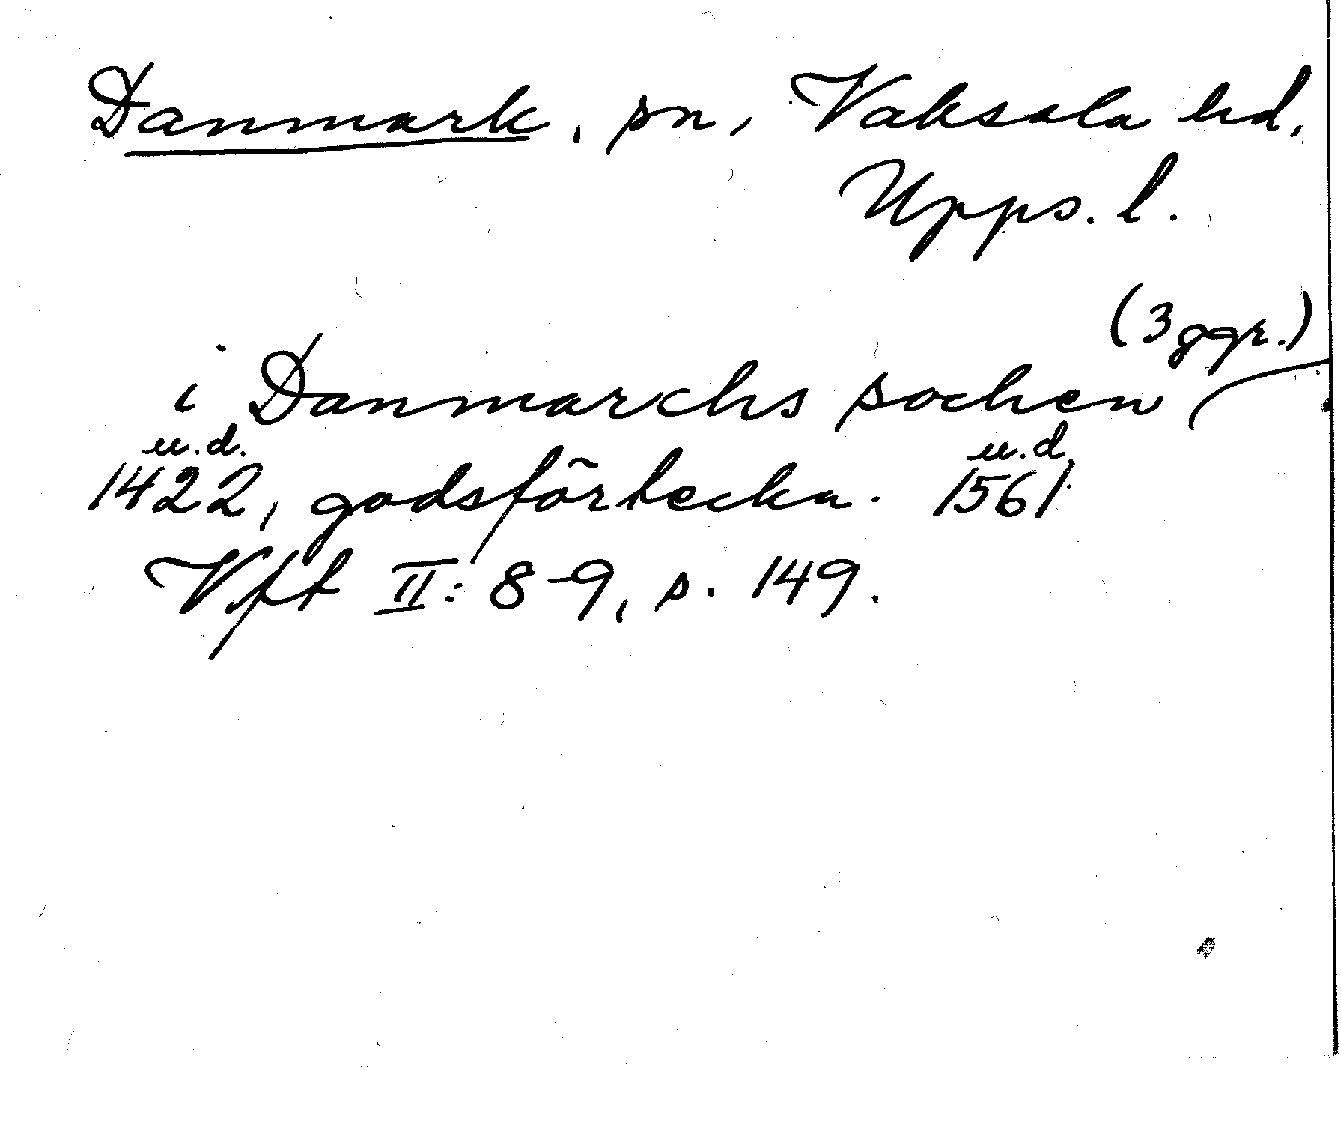 Danmark, sn, Vaksala hd,
Upps. l.
(3 ggr.)
i Danmarchs sochen
u.d. u.d.
1422, godsförteckn. 1561
Vft II: 8-9, s. 149.